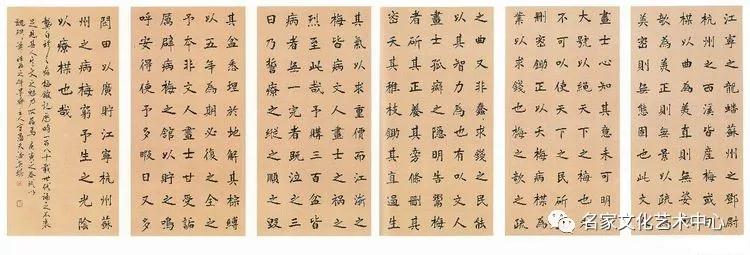 江寧之龍蟠蘇州之鄧尉
杭州之西溪皆產梅或曰
槑以曲為美直則無姿以
欹為美正則無景以疏為
美密則無態固也此文人
畫士心知其意未可明詔
大號以繩天下之梅也又
不可以使天下之民斫直
刪密鋤正以夭梅病槑為
業以求錢也梅之欹之疏
之曲又非蠢求錢之民能
以其智力為也有以文人
畫士孤癖之隱明告鬻梅
者斫其正養其旁條刪其
密夭其稚枝鋤其直遏其生
其氣以求重價而江浙之
梅皆病文人畫士之禍之
烈至此哉予購三百盆皆
病者無一完者既泣之三
日乃誓療之縱之順之毀
其盆悉埋於地解其棕縛
以五年為期必復之全之
予本非文人畫士甘受詬
厲辟病梅之館以貯之嗚
呼安得使予多暇日又多
閒田以廣貯江寧杭州蘇
州之病梅窮予生之光陰
以療槑也哉
龔自珍之病梅館記歷時一百八十載世代誦之不衰
足見其人其文之魅力
名家文化艺术中心